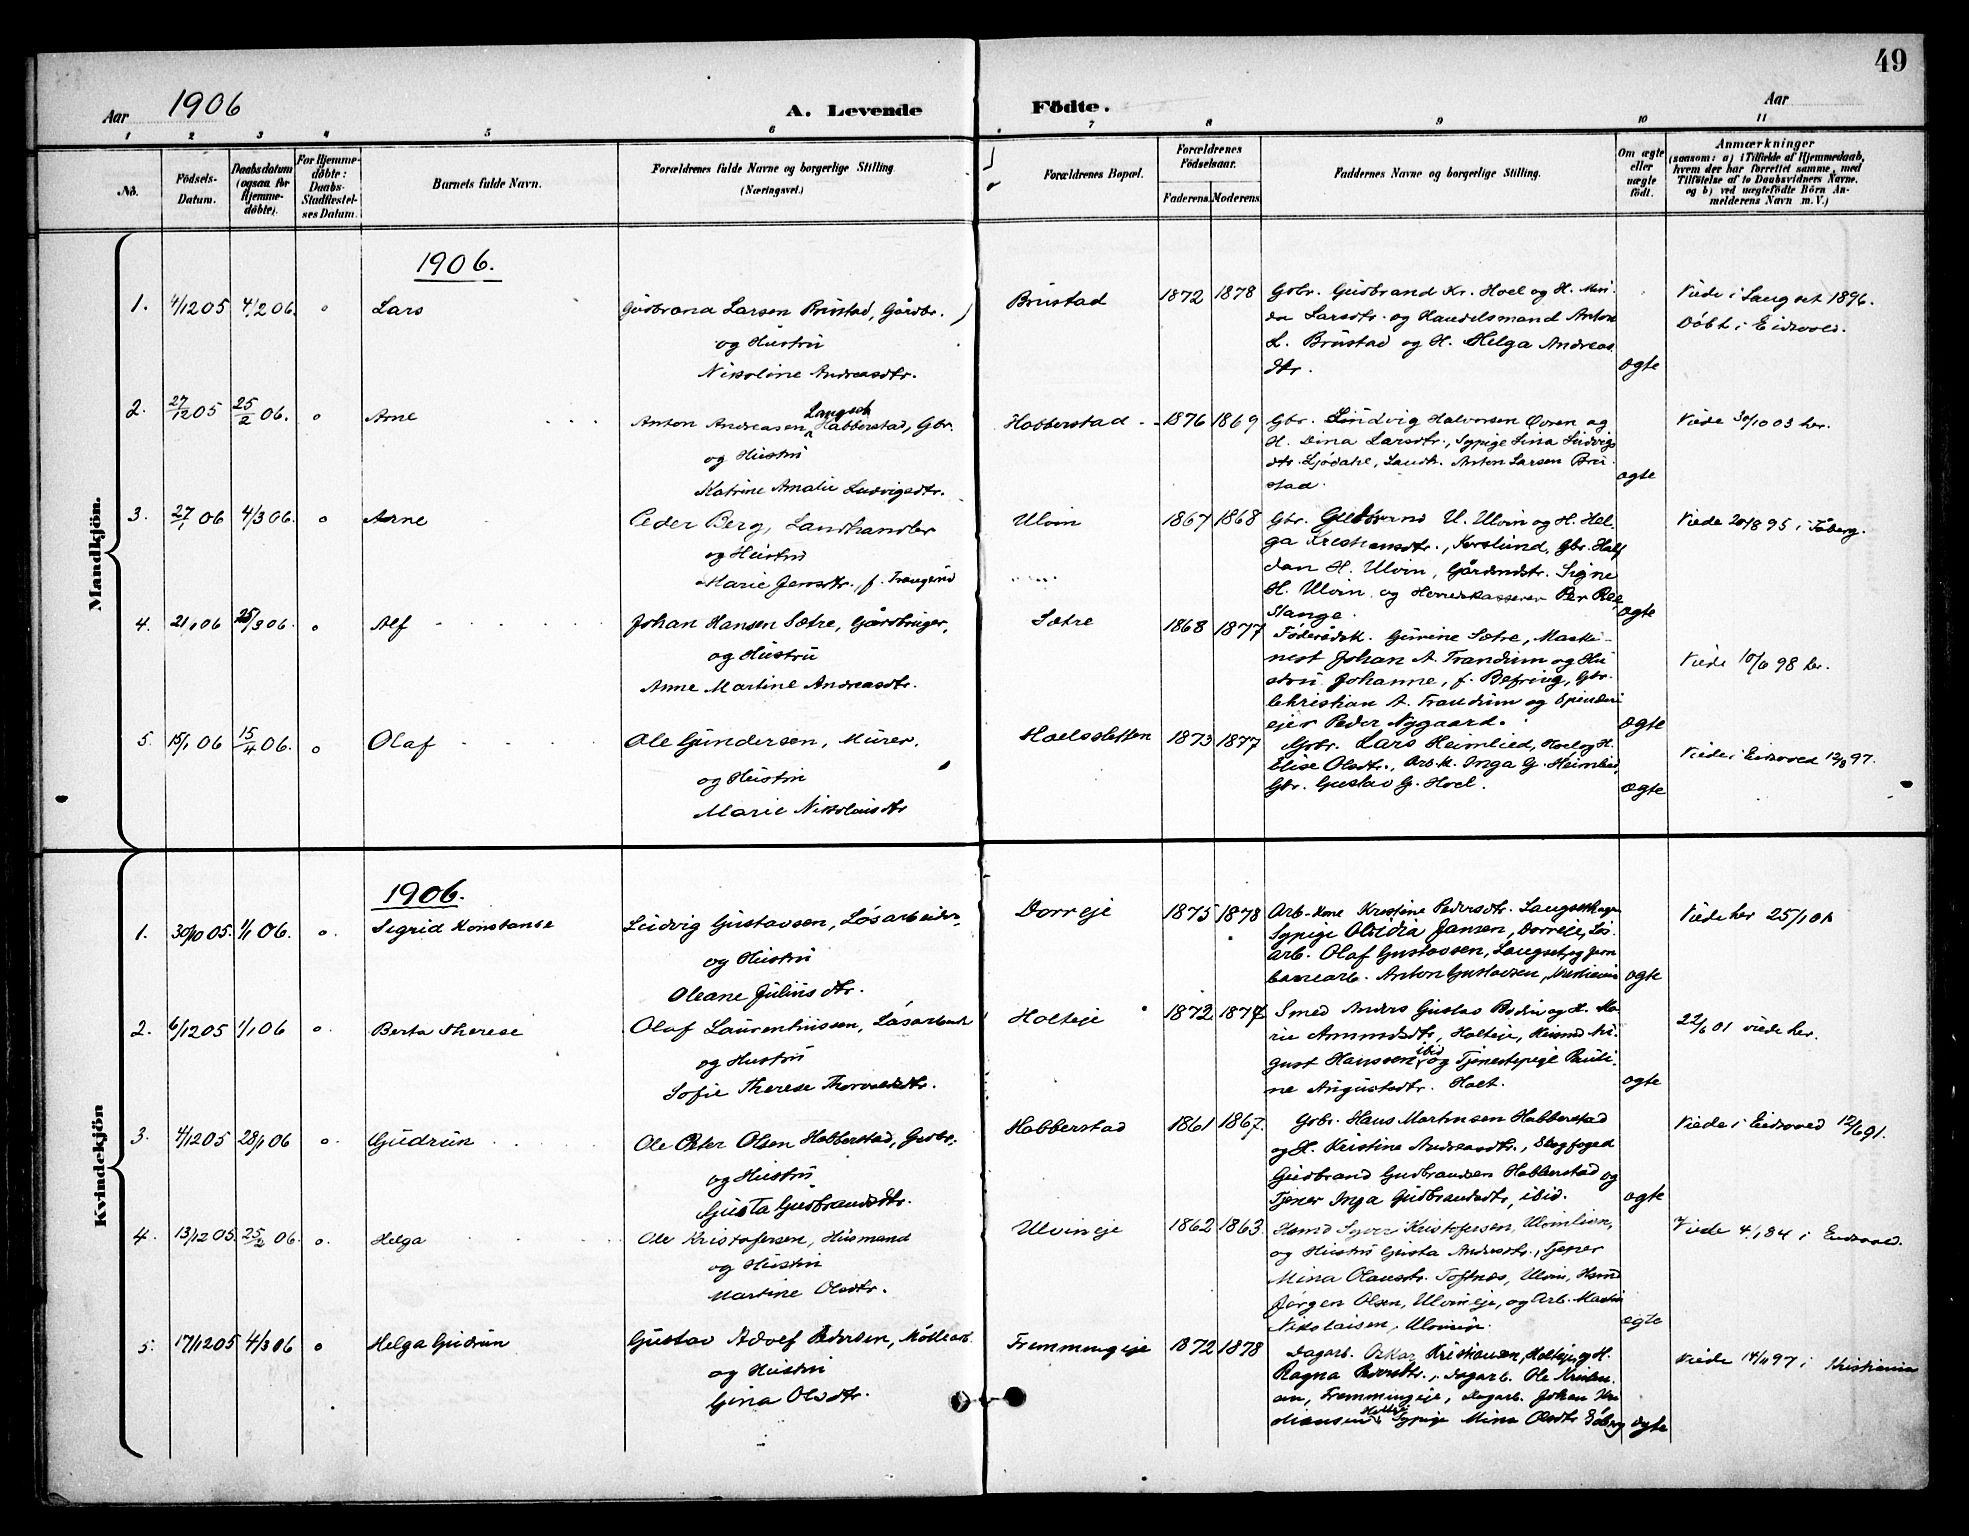 49
Aar 1906 A. Levende Födte. Aar
1 2 3 4 5 6 7 8 9 10 11
No. Födsels-Datum. Daabsdatum (ogsaa for Hjemme-döbte). For Hjemme-döbte: Daabs-Stadfæstel-ses Datum. Barnets fulde Navn. Forældrenes fulde Navne og borgerlige Stilling (Næringsvei.) Forældrenes Bopæl. Forældrenes Födselsaar. Faderens. Moderens. Faddernes Navne og borgerlige Stilling. Om ægte eller uægte födt. Anmærkninger (saasom: a) i Tilfælde af Hjemmedaab, hvem der har forrettet samme, med Tilföielse af to Daabsvidners Navne. og b) ved uægtefödte Börn An-melderens Navn m. V.)
Mandkjön.
1906.
1. 4/12 05 4/2 06. " Lars
Gudbrand Larsen Brustad, Gårdbr.
og Hustru
Nikoline Andreasdtr.
Brustad 1872 1878
Gbr. Gudbrand Kr. Hoel og H. Mari-
da Larsdtr. og Handelsmand Anton
L. Brustad og H. Helga Andreas
dtr. ægte
Viede i Langset 1896.
Döbt i Eidsvold.
2. 27/12 05 25/2 06. " Arne
Langset
Anton Andreasen Habberstad, Gbr.
og Hustru
Katrine Amalie Ludvigsdtr.
Habberstad 1876 1869
Gbr. Ludvig Halvorsen Øvren og
H. Dina Larsdtr., Sypige Lina Ludvigs
dtr. Ljödahl, Landh. Anton Larsen Bru-
stad. ægte
Viede 30/10 03 her.
3. 27/1 06 4/3 06. " Arne
Peder Berg, Landhandler
og Hustru
Marie Jensdtr., f. Traugerud
Ulvin 1867 1868
Gbr. Gudbrand U. Ulvin og H. Hel-
ga Kristiansdtr., Korslund, Gbr. Half
dan H. Ulvin, Gårdmdtr. Signe
H. Ulvin og Herredskasserer Per Ree
Stange. ægte
Viede 20/8 95 i Fåberg.
4. 21/1 06 25/3 06. " Alf
Johan Hansen Sætre, Gårdbruger,
og Hustru
Anne Martine Andreasdtr.
Sætre 1868 1877
Föderådsk. Gurine Sætre, Maski-
nist Johan A. Trandum og Hu
stru Johanne, f. Befring, Gbr.
Christian A. Trandum og Spinderi
ejer Peder Nygaard. ægte
Viede 10/6 98 her.
5. 15/1 06 15/4 06. " Olaf
Ole Gundersen, Murer,
og Hustru
Marie Nikolaisdtr
Hoelssletten 1873 1877
Gbr. Lars Heimlied, Hoel og H.
Elise Olsdtr., Arb.k. Inga G. Heimlied,
Gbr. Gustav G. Hoel. ægte
Viede i Eidsvold 12/8 97.
Kvindekjön
1906.
1. 30/10 05. 1/1 06. " Sigrid Konstanse
Ludvig Gustavsen, Løsarbeider
og Hustru
Oleane Juliusdtr.
Dorreje 1875 1878
Arb.-kone Kristine Pedersdtr. Langsethagen
Sypige Olvidia Jansen, Dorreje, Lös-
arb. Olaf Gustavsen, Langset, og Jern
banearb. Anton Gustavsen, Kristiania ægte
Viede her 25/1 01
2. 6/12 05 1/1 06 " Berta Therese
Olaf Laurentiussen, Løsarbeid
og Hustru
Sofie Therese Thorvaldsdtr.
Holteje 1872 1877
Smed Anders Gustav Bodin og H. Ma-
rie Ammundsdtr., Holteje, Husmd Au-
gust Hanssen ibid og Tjenestepige Pauli-
ne Augustsdtr. Holt. ægte
22/6 01 viede her.
3. 4/12 05 28/1 06 " Gudrun
Ole Peter Olsen Habberstad, Gårdbr.
og Hustru
Gusta Gudbrandsdtr.
Habberstad 1861 1867.
Gbr. Hans Martinsen Habberstad
og H. Kristine Andreasdtr., Skogfoged
Gudbrand Gudbrandsen Habberstad og
Tjener Inga Gudbrandsdtr, ibid. ægte
Viede i Eidsvold 12/6 91.
4. 13/12 05 25/2 06. " Helga
Ole Kristofersen, Husmand
og Hustru
Martine Olsdtr.
Ulvineje 1862 1863
Husmd Syver Kristofersen, Ulvinlien,
og Hustru Gusta Andersdtr., Tjener
Mina Olausdtr. Toftnæs, Ulvin, Husmd
Jørgen Olsen, Ulvineje, og Arb. Martin
Nikolaisen, Ulvineje. ægte
Viede 4/1 84 i Eidsvold.
5. 17/12 05 4/3 06 " Helga Gudrun
Gustav Adolf Pedersen, Möllearb.
og Hustru
Gina Olsdtr.
Fremmingeje 1872 1878
Dagarb. Oskar Kristiansen, Holteje, og H.
Ragna Pedersdtr., Dagarb. Ole Kristian-
sen, Fremmingeje, Dagarb. Johan Kri
stiansen Holteje, Sypige Mina Olsdtr ægte
Viede 14/11 97 i Kristiania